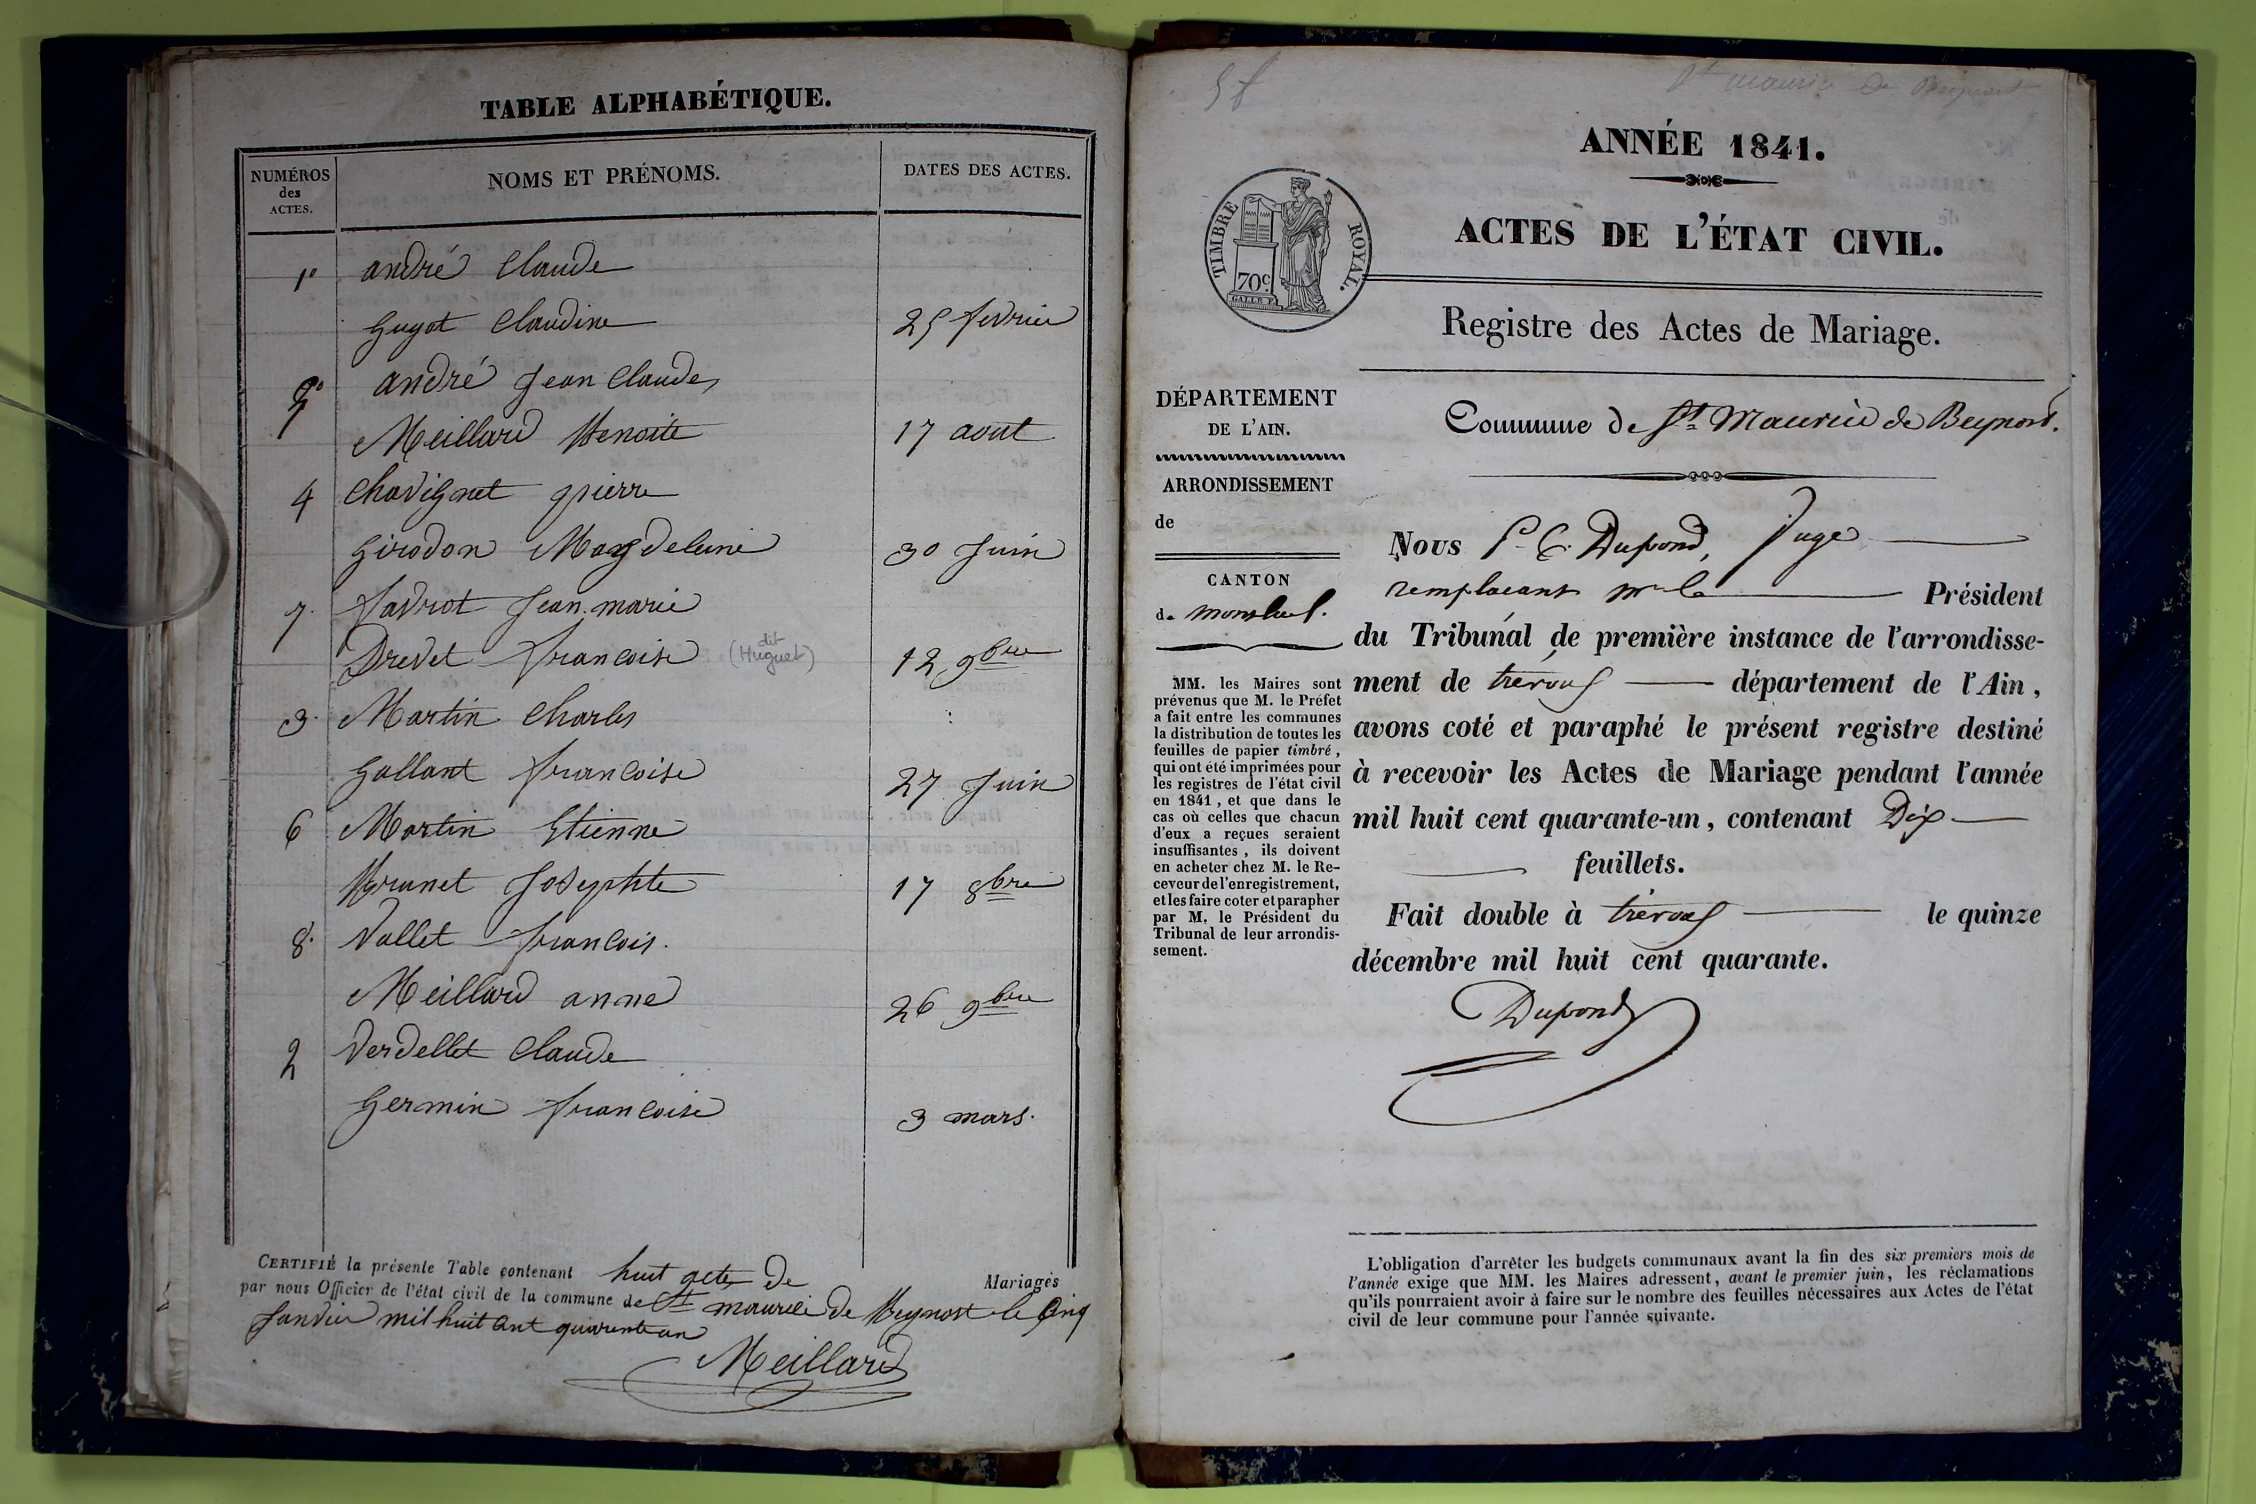 TABLE ALPHABÉTIQUE.
NUMÉROS
des
ACTES.
NOMS ET PRÉNOMS.
DATES DES ACTES.
1° andré Claude
Guyot Claudine 25 fevrier
andré Jean Claude
Meillard Benoite 17 aout
4 Chavignet pierre
Girodon Magdeleine 30 Juin
7. favrot Jean marie
Drevet francoise (dit Huguet) 12 9bre
3. Martin Charles
Gallant francoise 27 Juin
6 Martin Etienne
Brunet Josephte 17 8bre
8. Vallet francois.
Meillard anne 26 9bre
2 Verdellet Claude
Germin francoise 3 mars.
CERTIFIÉ la présente Table contenant huit actes de Mariages
par nous Officier de l'état civil de la commune de St maurice de Beynost le Cinq
Janvier mil huit Cent quarante un
Meillard
St maurice de Beynost
ANNÉE 1841.
TIMBRE ROYAL.
70c.
GALLE F.
ACTES DE L'ÉTAT CIVIL.
Registre des Actes de Mariage.
DÉPARTEMENT
DE L'AIN.
ARRONDISSEMENT
de
CANTON
de montluel.
MM. les Maires sont
prévenus que M. le Préfet
a fait entre les communes
la distribution de toutes les
feuilles de papier timbré,
qui ont été imprimées pour
les registres de l'état civil
en 1841, et que dans le
cas où celles que chacun
d'eux a reçues seraient
insuffisantes, ils doivent
en acheter chez M. le Re-
ceveur de l'enregistrement,
et les faire coter et parapher
par M. le Président du
Tribunal de leur arrondis-
sement.
Commune de St Maurice de Beynost.
Nous Dupond, Juge
remplacant mr le Président
du Tribunal de première instance de l'arrondisse-
ment de trévoux département de l'Ain,
avons coté et paraphé le présent registre destiné
à recevoir les Actes de Mariage pendant l'année
mil huit cent quarante-un, contenant Dix
feuillets.
Fait double à trévoux le quinze
décembre mil huit cent quarante.
Dupond
L'obligation d'arrêter les budgets communaux avant la fin des six premiers mois de
l'année exige que MM. les Maires adressent, avant le premier juin, les réclamations
qu'ils pourraient avoir à faire sur le nombre des feuilles nécessaires aux Actes de l'état
civil de leur commune pour l'année suivante.